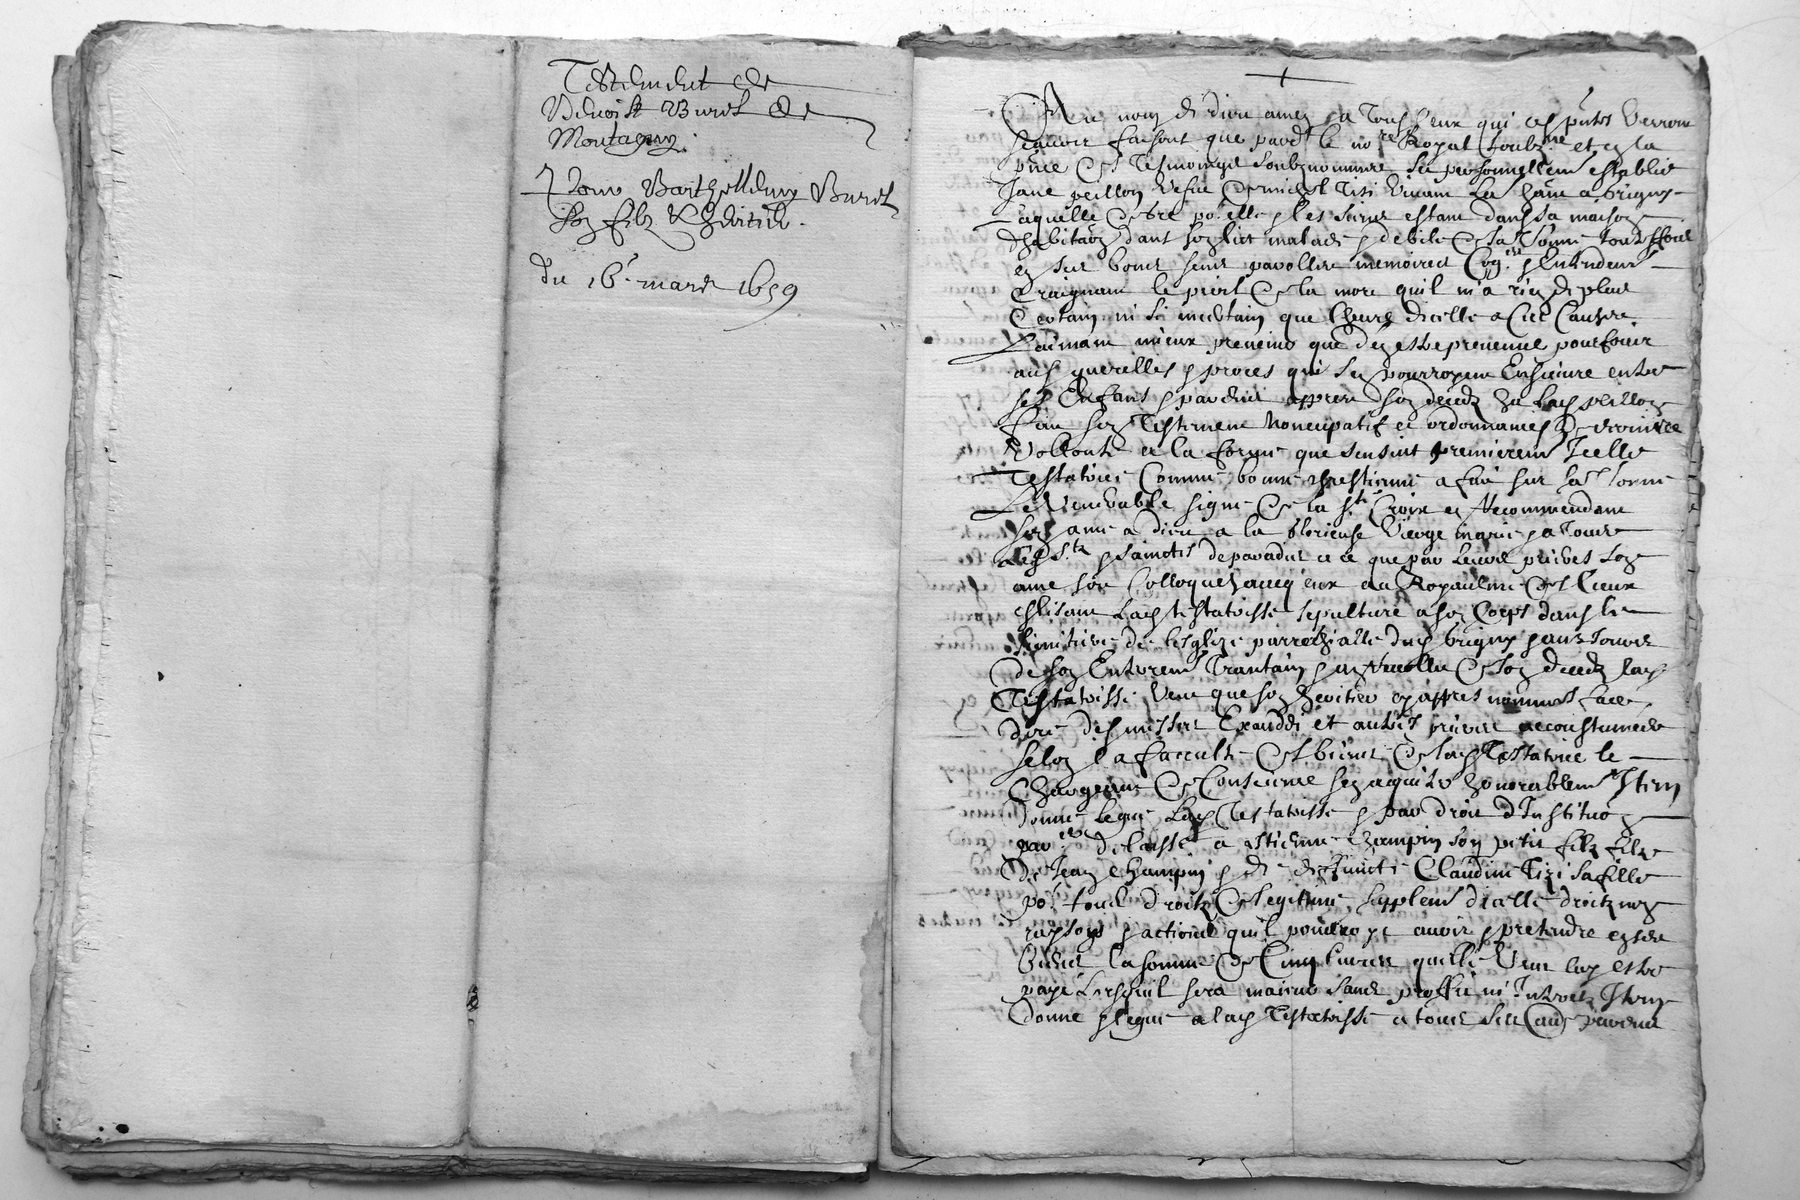 Testement de
Benoist Buret de
Montagny.
pour Barthellemy Buret
son filz & heritier.
du 16e mars 1659
Au nom de dieu amen a Tous ceux qui ces pntes Verront
scavoir faisons que pardt le nore Royal soubzne et en la
pnce des Tesmoingz soubznommes fut personnellemt establie
Jane peillon vefve de michel Tisi vivant de brigny
laquelle de gre po elle & les siens estant dans sa maison
dhabitaon dans son lict malade & debile de sa personne touteffois
en ses bons sens parolles memoires & entendemt
Craignant le peril de la mort quil n'a rien de plus
Certain ni si incertain que lheure dicelle a Cet Cause
Aimant mieux prevenir que den estre prevenue pour fouir
aux querelles & proces qui sen pourroyent Ensuivre entre
ses Enfans & parens appres son deceds ha lad peillon
fait son Testement Noncupatif et ordonnances de derniere
Vollonte en la forme que sensuit premieremt Icelle
Testatrice Comme bonne chrestienne a fait sur sa personne
Le Venerable signe de la ste Croix en Recommendant
son ame a dieu a la glorieuse Vierge marie & a tous
les sts & sainctes de paradis a ce que par leurs prieres son
ame soit Colloquee avecq eux au Royaulme des Cieux
eslisant lad testatrisse sepulture a son Corps dans le
simitiere de lesglize parrochialle dud brigny & aux Jours
de son Enterremt Trantain & an revollu de son deceds lad
Testatrisse Veut que son heritier cy appres nomme face
dire des messes Exauddi et autres prieres accoustumees
selon la faculte des biens de lad Testatrice le
Chargeant de Consience sen acquiter honorablemt Item
donne legue lad Testatrisse & par droit d'Institution
parre delaisse a estienne champin son petit filz filz
de Jean champin & de deffuncte Claudine Tizi sa fille
po tous droitz de legitime supplemt dicelle droitz noms
raysons & actions quil pourroyt avoir & pretendre en ses
biens la somme de Cinq livres quelle veut luy estre
paye Lorsquil sera majeur sans proffit ni Interetz Item
donne & legue a lad Testatrisse a tous ses autres parens